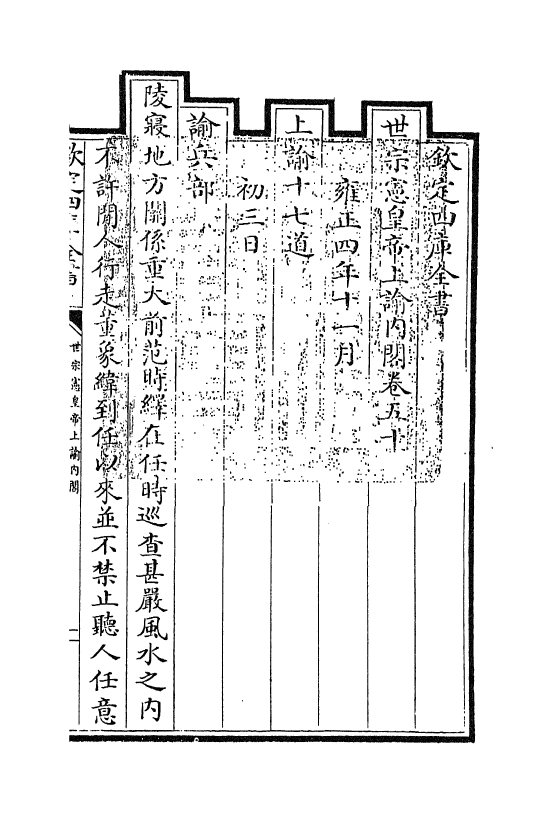 欽定四庫全書
世宗憲皇帝上諭内閣卷五十
雍正四年十一月
上諭十七道
初三日
諭兵部
陵寢地方關係重大前范時繹在任時巡查甚嚴風水之内
不許閒人行走董象緯到任以來並不禁止聽人任意
欽定四庫全書
世宗憲皇帝上諭内閣